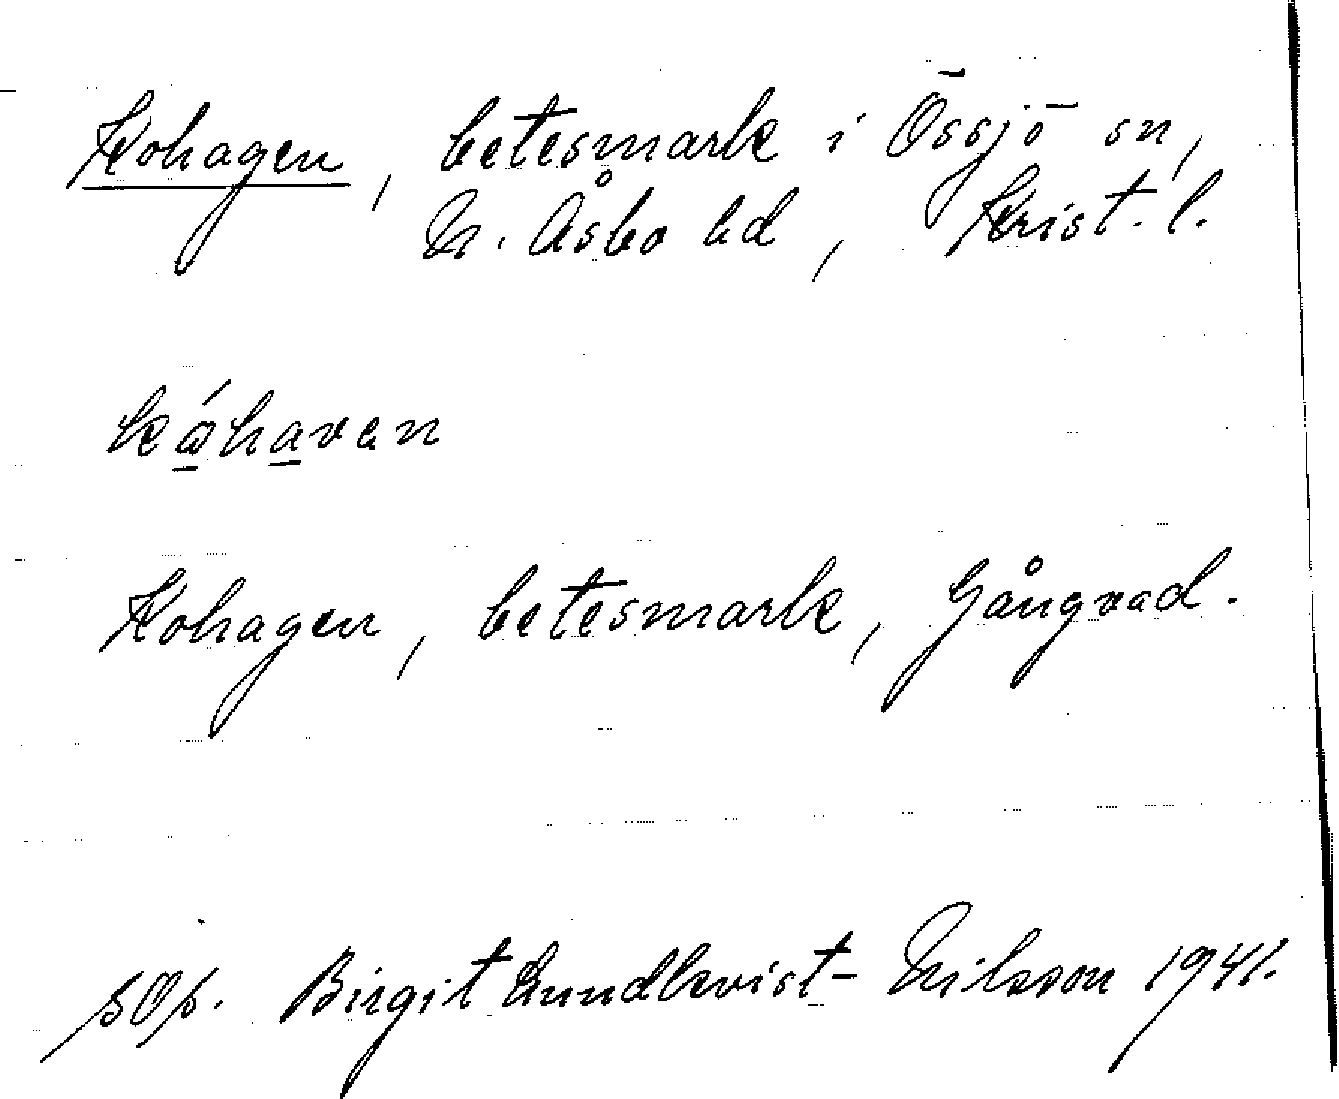 Kohagen, betesmark i Össjö sn,
N. Åsbo hd, Krist. l.
kóhaven
Kohagen, betesmark, Gångvad.
Birgit Lundkvist-Nilsson 1941.